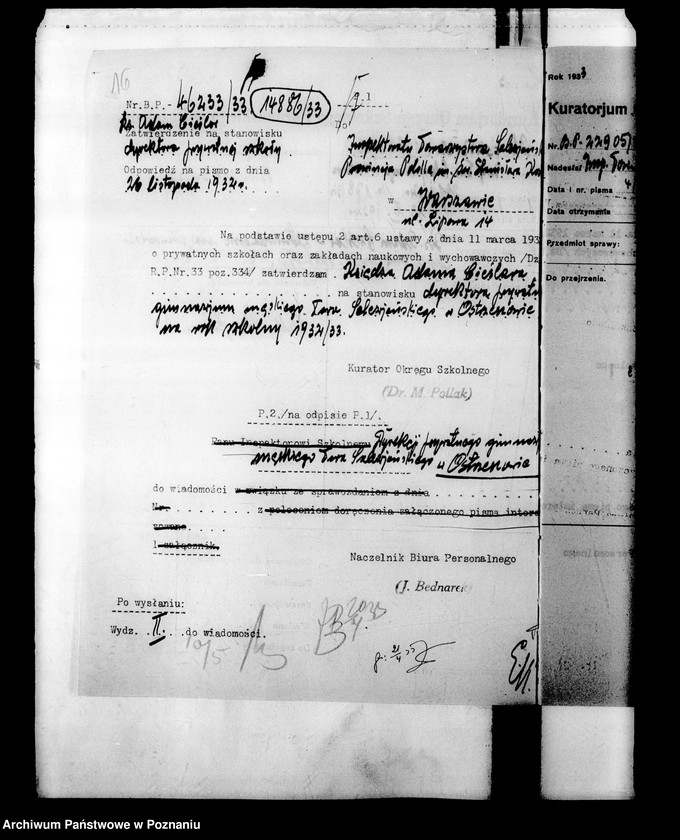 16
Nr.B.P.- 46233/33 14886/33
P.1
ks. Adam Cieślar
Zatwierdzenie na stanowisku
dyrektora prywatnej szkoły.
Odpowiedź na pismo z dnia
26 listopada 1932 r.
Inspektoratu Towarzystwa Salezjańsk
Prowincja Polska p.w. św. Stanisława
w Warszawie
ul. Lipowa 14
Na podstawie ustępu 2 art.6 ustawy z dnia 11 marca 193
o prywatnych szkołach oraz zakładach naukowych i wychowawczych /Dz
R.P.Nr.33 poz.334/ zatwierdzam . Księdza Adama Cieślara
na stanowisku dyrektora prywatn
gimnazjum męskiego Tow. Salezjańskiego w Ostrzeszowie
na rok szkolny 1932/33.
Kurator Okręgu Szkolnego
(Dr. M. Pollak)
P.2./na odpisie P.1/.
Panu Inspektorowi Szkolnemu Dyrekcji prywatnego gimnaz
męskiego Tow. Salezjańskiego w Ostrzeszowie
do wiadomości w związku ze sprawozdaniem z dnia
Nr. z poleceniem doręczenia załączonego pisma intere
sowane
1 załącznik.
Naczelnik Biura Personalnego
(J. Bednarek)
Po wysłaniu:
Wydz. II. do wiadomości.
21/4 33
Rok 1933
Kuratorjum
Nr. B.P-22905
Nadesłał Insp. Tow
Data i nr. pisma
Data otrzymania
Przedmiot sprawy:
Do przejrzenia.
Archiwum Państwowe w Poznaniu